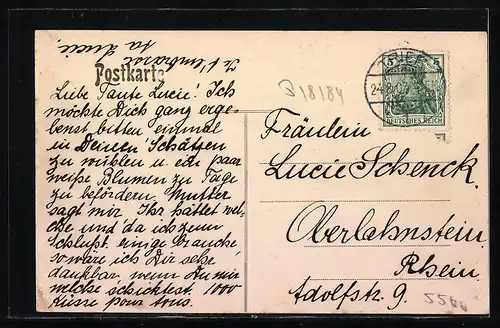 Postkarte
Je t'embrasse
ta Lucie.
Liebe Tante Lucie! Ich
möchte Dich ganz erge-
benst bitten einmal
in Deinen Schätzen
zu wühlen u. ein paar
weiße Blumen zu Tage
zu befördern. Mutter
sagt mir, Ihr hättet wel-
che und da ich zum
Schluß einige brauche,
so wäre ich Dir sehr
dankbar, wenn Du mir
welche schicktest. 1000
Küsse pour tous.
18184
TRIER
5
DEUTSCHES REICH
Fräulein
Lucie Schenck.
Oberlahnstein
Rhein
Adolfstr. 9.